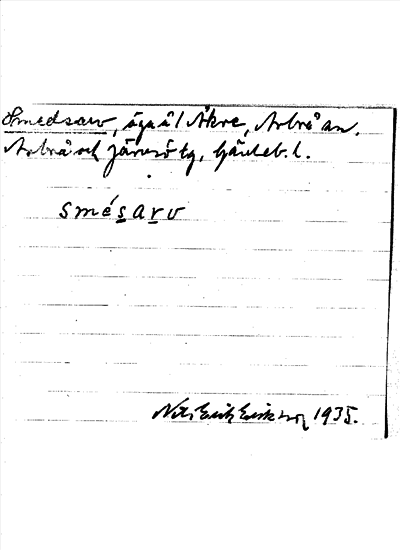 Smedsarv, äga å l Åkre, Arbrå sn.
Arbrå och Järvsö tg, Gävleb. l.
smésarv
Nils Erik Eriksson 1935.